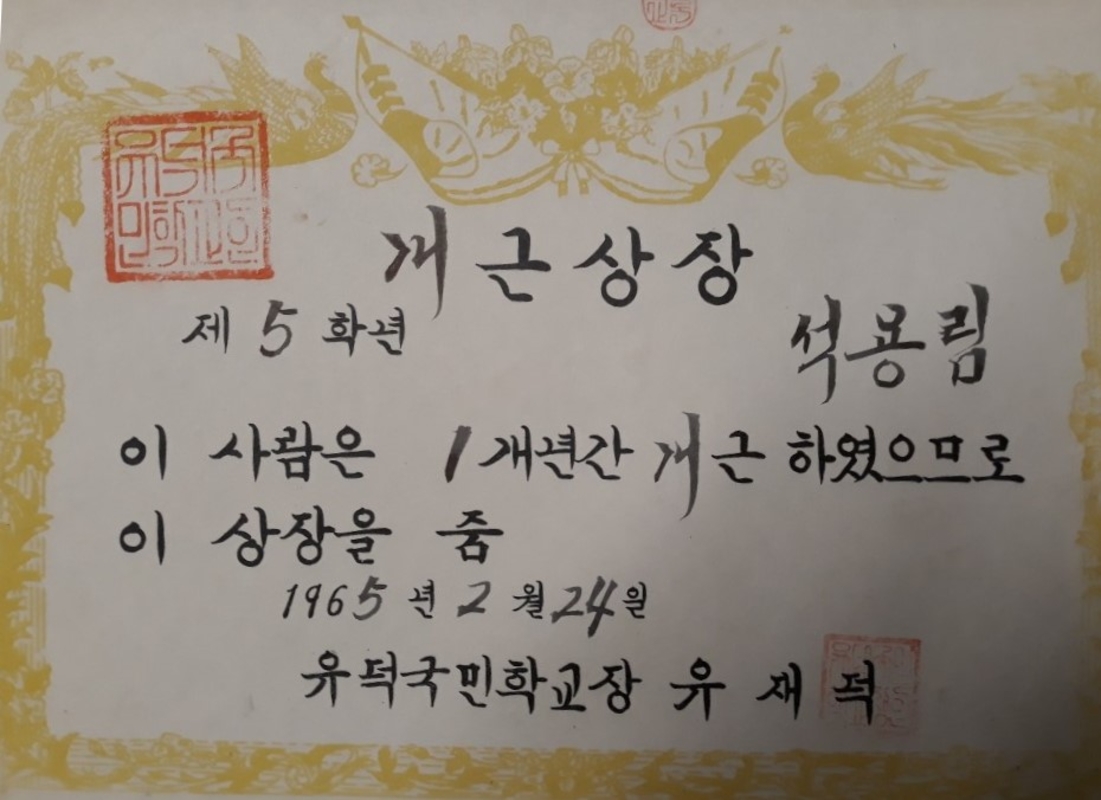 개근상장
제 5 학년
석용림
이 사람은 1개년간 개근 하였으므로
이 상장을 줌
1965 년 2 월 24 일
유덕국민학교장 유 재 덕